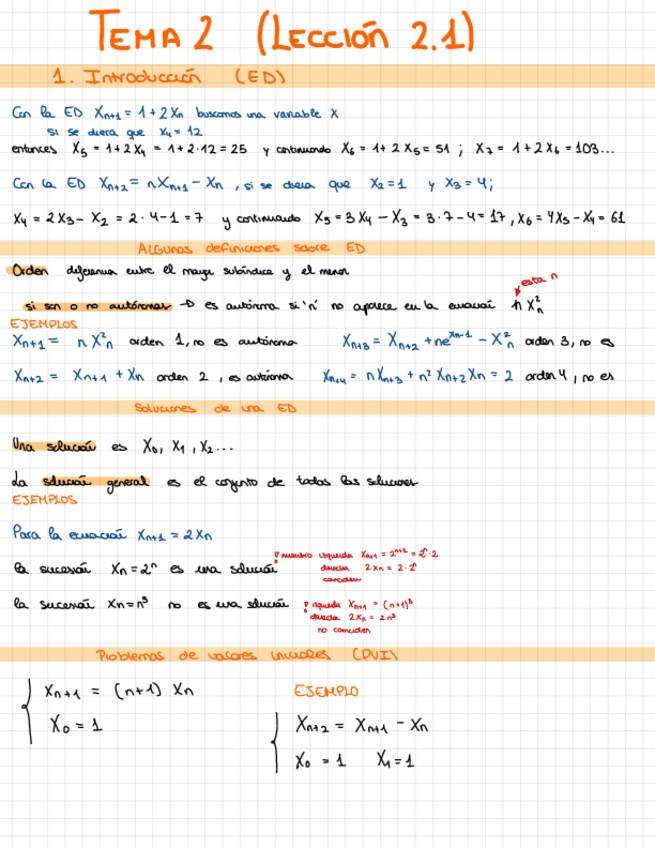 TEMA 2 (LECCIÓN 2.1)
1. Introducción (ED)
Con la ED Xn+1 = 1+2Xn buscamos una variable X
si se diera que X4 = 12
entonces X5 = 1+2X4 = 1+2·12 = 25 y continuando X6 = 1+2X5 = 51 ; X7 = 1+2X6 = 103...
Con la ED Xn+2 = nXn+1 - Xn , si se diera que X2=1 y X3=4;
X4 = 2X3 - X2 = 2·4-1 = 7 y continuando X5 = 3X4 - X3 = 3·7-4 = 17, X6 = 4X5 - X4 = 61
ALGUNAS definiciones sobre ED
Orden diferencia entre el mayor subíndice y el menor
esta n
si son o no autónomas → es autónoma si 'n' no aparece en la ecuación n Xn²
EJEMPLOS
Xn+1 = n Xn² orden 1, no es autónoma Xn+3 = Xn+2 + ne^Xn-1 - Xn² orden 3, no es
Xn+2 = Xn+1 + Xn orden 2, es autónoma Xn+4 = nXn+3 + n² Xn+2 Xn = 2 orden 4, no es
Soluciones de una ED
Una solución es X0, X1, X2...
La solución general es el conjunto de todas las soluciones
EJEMPLOS
Para la ecuación Xn+1 = 2Xn
la sucesión Xn = 2ⁿ es una solución
miembro izquierda Xn+1 = 2ⁿ⁺¹ = 2ⁿ·2
derecha 2Xn = 2·2ⁿ
coinciden
la sucesión Xn = n³ no es una solución
izquierda Xn+1 = (n+1)³
derecha 2Xn = 2n³
no coinciden
Problemas de valores iniciales (PVI)
Xn+1 = (n+1) Xn
X0 = 1
EJEMPLO
Xn+2 = Xn+1 - Xn
X0 = 1 X1 = 1